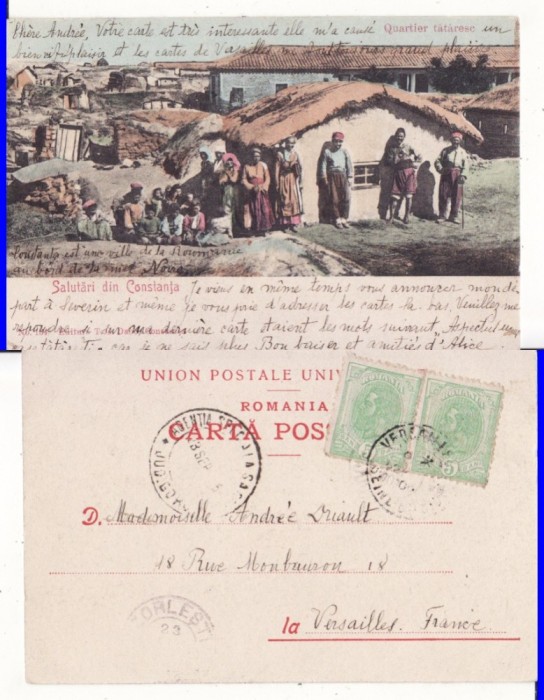 Chère Andrée, Votre carte est très interessante elle m'a causé un
Quartier tătăresc
bien vif plaisir et les cartes de Versailles me font toujours grand plaisir
Constanța est une ville de la Roumanie
au bord de la mer Noire
Salutări din Constanța
Je viens en même temps vous annoncer mon dé
part à Severin et même je vous prie d'adresser les cartes là bas. Veuillez me
répondre si sur ma dernière carte étaient les mots suivant "Aspectul
car je ne sais plus Bon baiser et amitiés d'Alice
UNION POSTALE UNI
ROMANIA
CARTĂ POS
AGENTIA SPECIALA
5
D. Mademoiselle Andrée Driault
18 Rue Monbauron 18
la Versailles. France.
ORLEȘTI
23